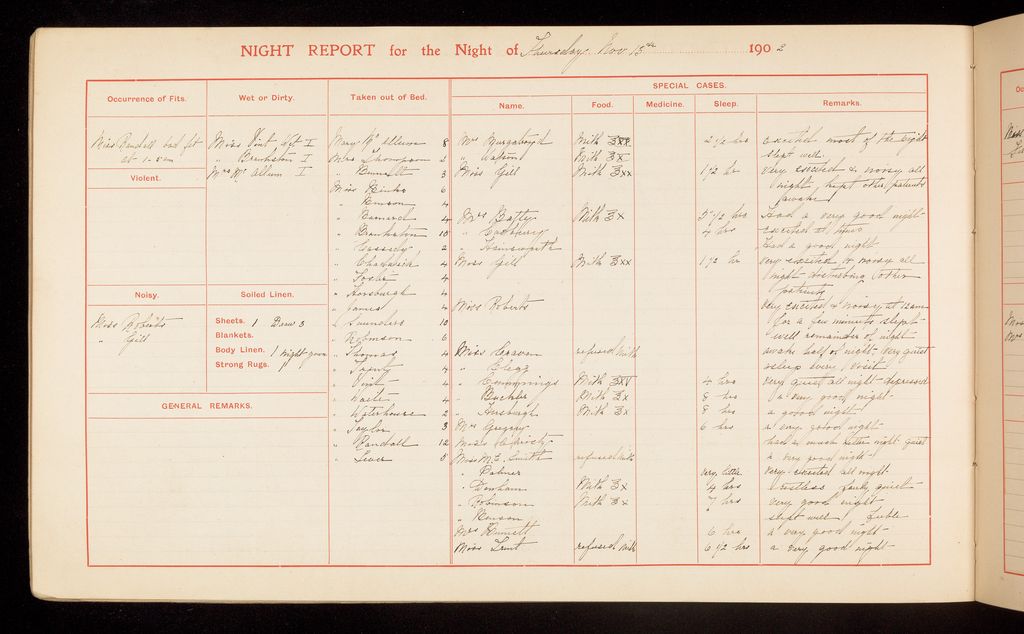 NIGHT REPORT for the Night of Thursday Nov 13th 1902
Occurrence of Fits.
Miss Randall had fit
at 1-5 am
Violent.
Noisy.
Miss Roberts
" Gill
Wet or Dirty.
Miss Vint Wet I
" Brankston I
Mrs Mc Allum I
Soiled Linen.
Sheets. 1 Draw 3
Blankets.
Body Linen. 1 night gown
Strong Rugs.
GENERAL REMARKS.
Taken out of Bed.
Mary Mc Allum 8
Miss Thompson 2
" Bennett 3
Miss 6
" Benson 4
" Barnard 4
" Brankston 10
" Cassidy 2
" Chadwick 4
" Foster 4
" Horsburgh 4
" James 4
" Saunders 10
" Robinson 6
" Thomas 4
" 4
" Vint 4
" Waite 4
" Waterhouse 2
" Taylor 3
" Randall 12
" Lever 5
SPECIAL CASES.
Name. Food. Medicine. Sleep. Remarks.
Mrs Milk 2 1/2 hrs excited most of the night
" Watson Milk slept well
Miss Gill Milk 1 1/2 hr very excited & noisy all
night, kept other patients
awake
Mrs Batty Milk 5 1/2 hrs Had a very good night
" 4 hrs excited at times
" Hainsworth Had a good night
Miss Gill Milk 1 1/2 hr very excited & noisy all
night disturbing other
patients
Miss Roberts very excited & noisy at 12 am
for a few minutes slept
well remainder of night
Miss Craven refused milk awake half of night. very quiet
" Clegg asleep every visit
" Cummings Milk 4 hrs very quiet all night depressed
" Buckler Milk 8 hrs a very good night
" Milk 8 hrs a good night
Mrs Gregory 6 hrs a very good night
Miss Christy had a much better night quiet
Miss M. E. Smith refused milk a very good night
" Palmer very little very excited all night
" Denham Milk 4 hrs restless fairly quiet
" Robinson Milk 7 hrs very good night
" Benson slept well, feeble
Mrs Bennett 6 hrs a very good night
Miss Trent refused milk 6 1/2 hrs a very good night